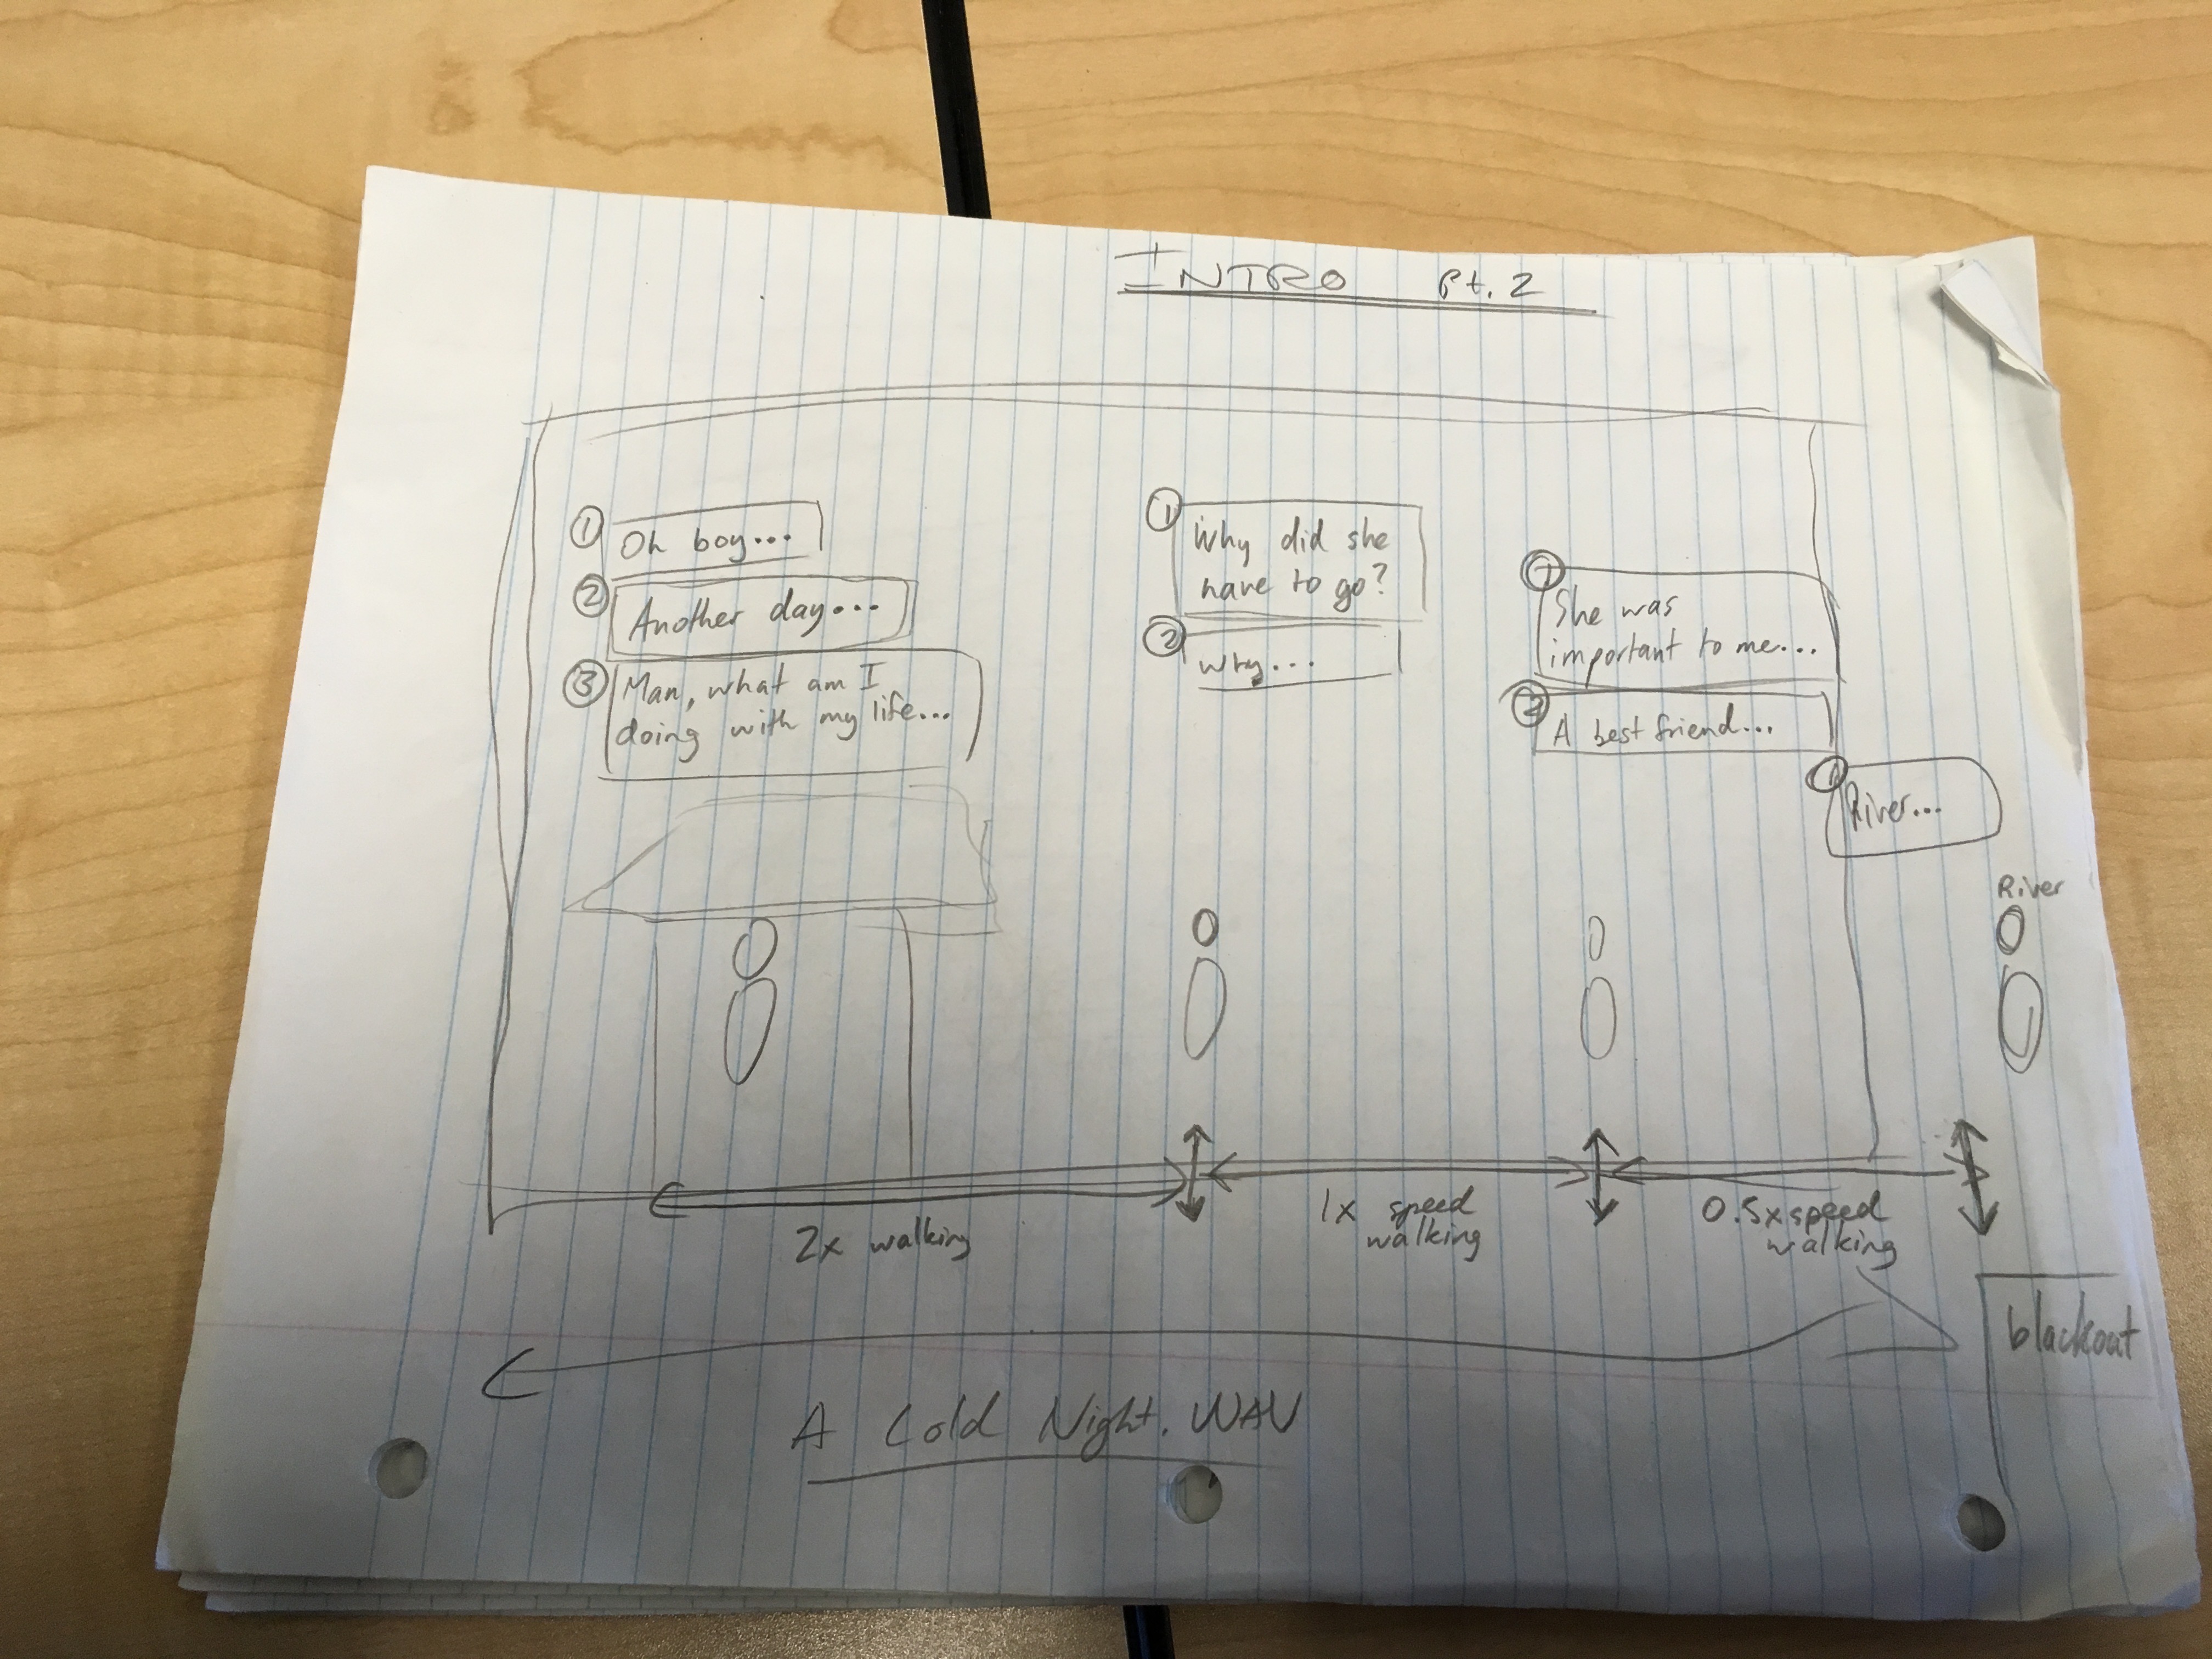 INTRO Pt. 2
1
Oh boy...
2
Another day...
3
Man, what am I
doing with my life...
1
Why did she
have to go?
2
Why...
1
She was
important to me...
2
A best friend...
1
River...
River
2x walking
1x speed
walking
0.5x speed
walking
blackout
A Cold Night.WAV